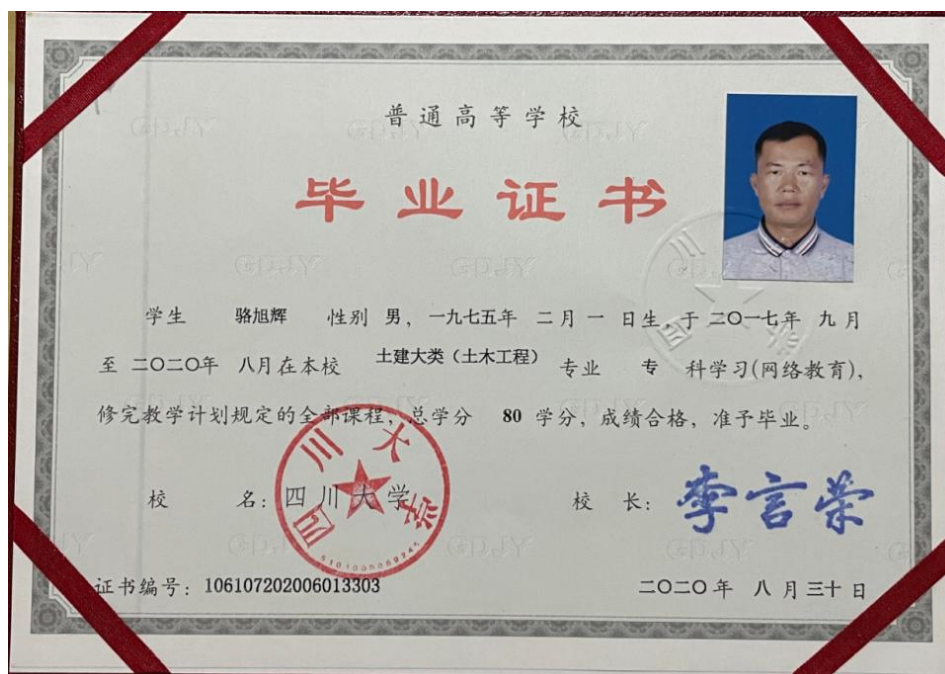 普通高等学校
毕业证书
学生 骆旭辉 性别 男，一九七五年 二月 一 日生，于 二〇一七年 九月
至 二〇二〇年 八月在本校 土建大类（土木工程） 专业 专 科学习(网络教育)，
修完教学计划规定的全部课程，总学分 80 学分，成绩合格，准予毕业。
校 名：四川大学
校 长：李言荣
四川大学
5101000089245
证书编号：106107202006013303
二〇二〇年 八月三十日